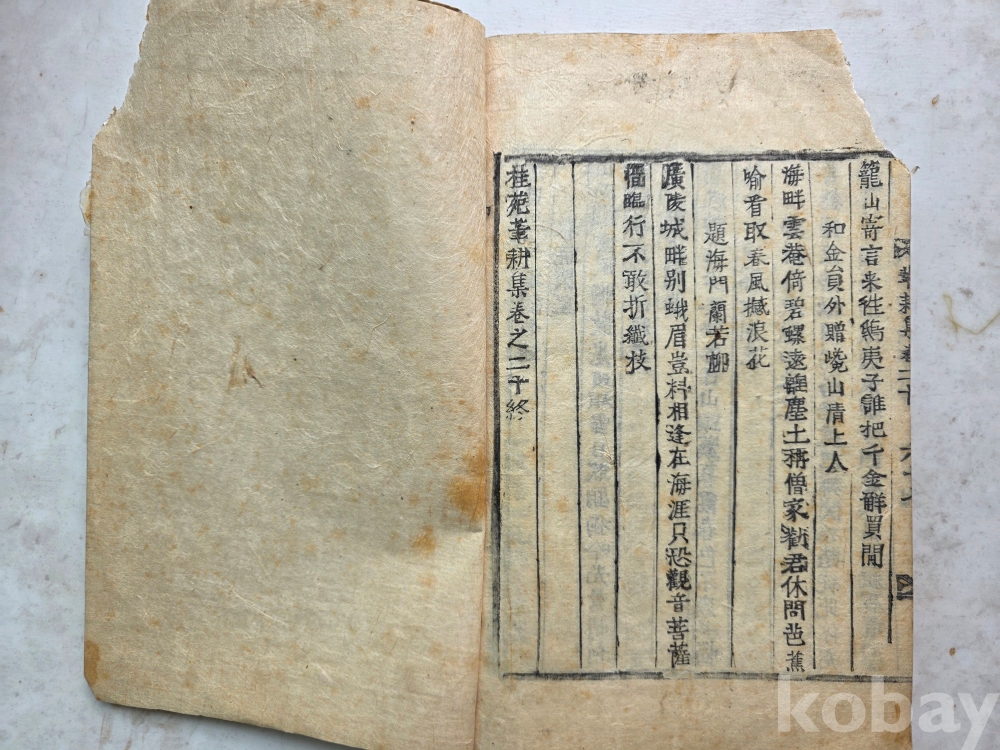 籠山寄言来徃鴟夷子誰把千金解買閒
和金員外贈巉山清上人
海畔雲菴倚碧螺遠離塵土稱僧家勸君休問芭蕉
喩看取春風撼浪花
題海門蘭若柳
廣陵城畔別蛾眉豈料相逢在海涯只恐觀音菩薩
惜臨行不敢折纖枝
桂苑筆耕集卷之二十終
kobay